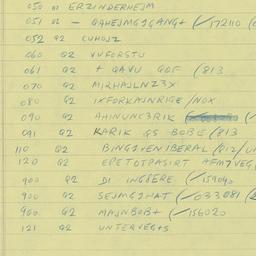 050 02 ERZINDERHEJM
051 02 - QAHEJMGJGANG+ (/172110 (
052 Q2 CUHOJZ
060 Q2 VVFORSTU
061 Q2 + QAVU GOF (813
070 Q2 MIKHAJLNZ3X
080 Q2 IXFORKAJNRIGE /NOX
090 Q2 AHINUNC3RIK
091 Q2 KARIK QS BOBE (813
110 Q2 BINGJVENIBERAL (812/U
120 Q2 EPETOTPASIRT AFMJVEG,
900 Q2 DI INGSERE (/159040
900 Q2 SEJMGJHAT (/033081 (
900 Q2 MAJNBOB+ (/156020
121 Q2 UNTERVEG+S